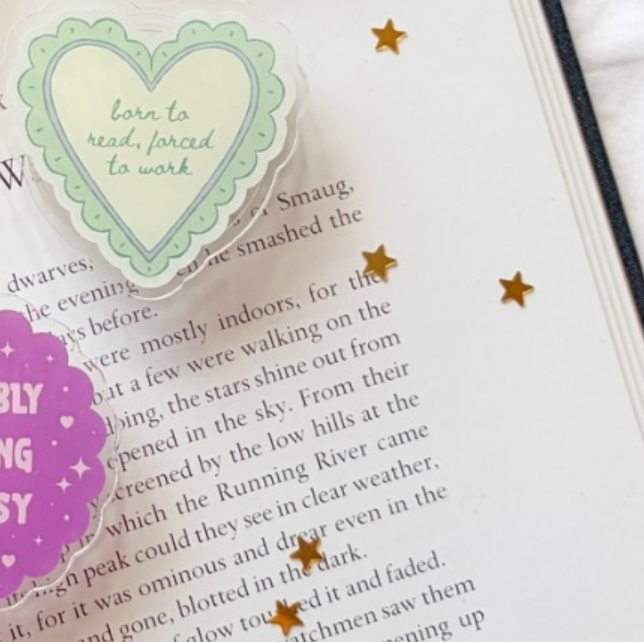 born to
read, forced
to work
W
of Smaug,
dwarves, he smashed the
the evening
days before.
were mostly indoors, for the
but a few were walking on the
doing, the stars shine out from
opened in the sky. From their
screened by the low hills at the
in which the Running River came
high peak could they see in clear weather,
it, for it was ominous and drear even in the
and gone, blotted in the dark.
glow touched it and faded.
watchmen saw them
opening up
BLY
NG
SY